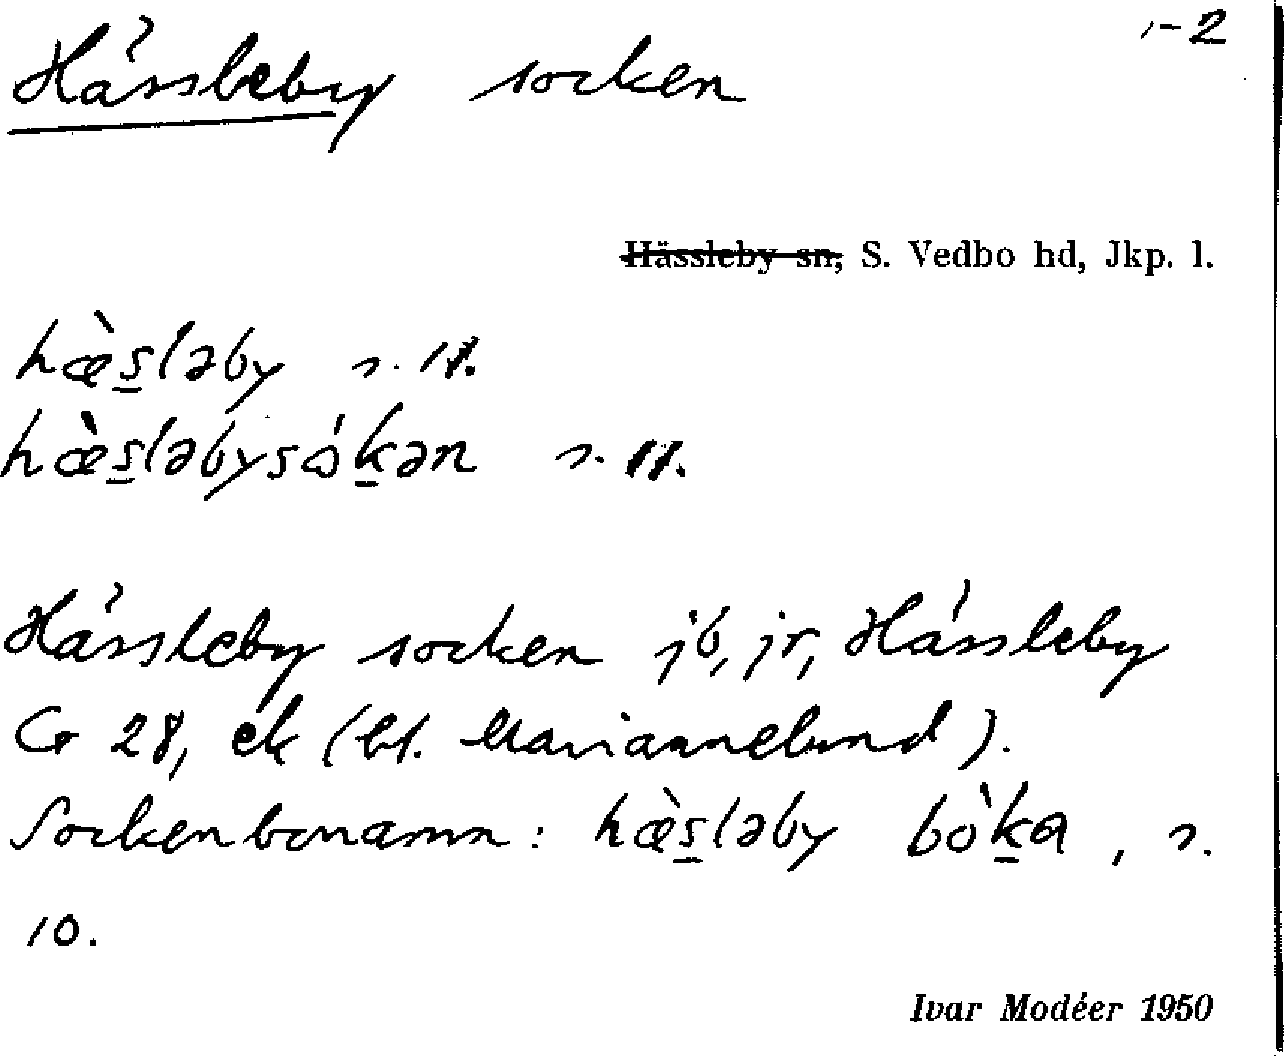 1-2
Hässleby socken
Hässleby sn, S. Vedbo hd, Jkp. l.
hæ̀s̠ləby s. 11.
hæ̀s̠ləbysɔ́k̠ən s. 11.
Hässleby socken jb, jr, Hässleby
Gs 28, ek (bl. Mariannelund).
Sockenbonamn: hæ̀s̠ləby bò̀k̠a, s.
10.
Ivar Modéer 1950